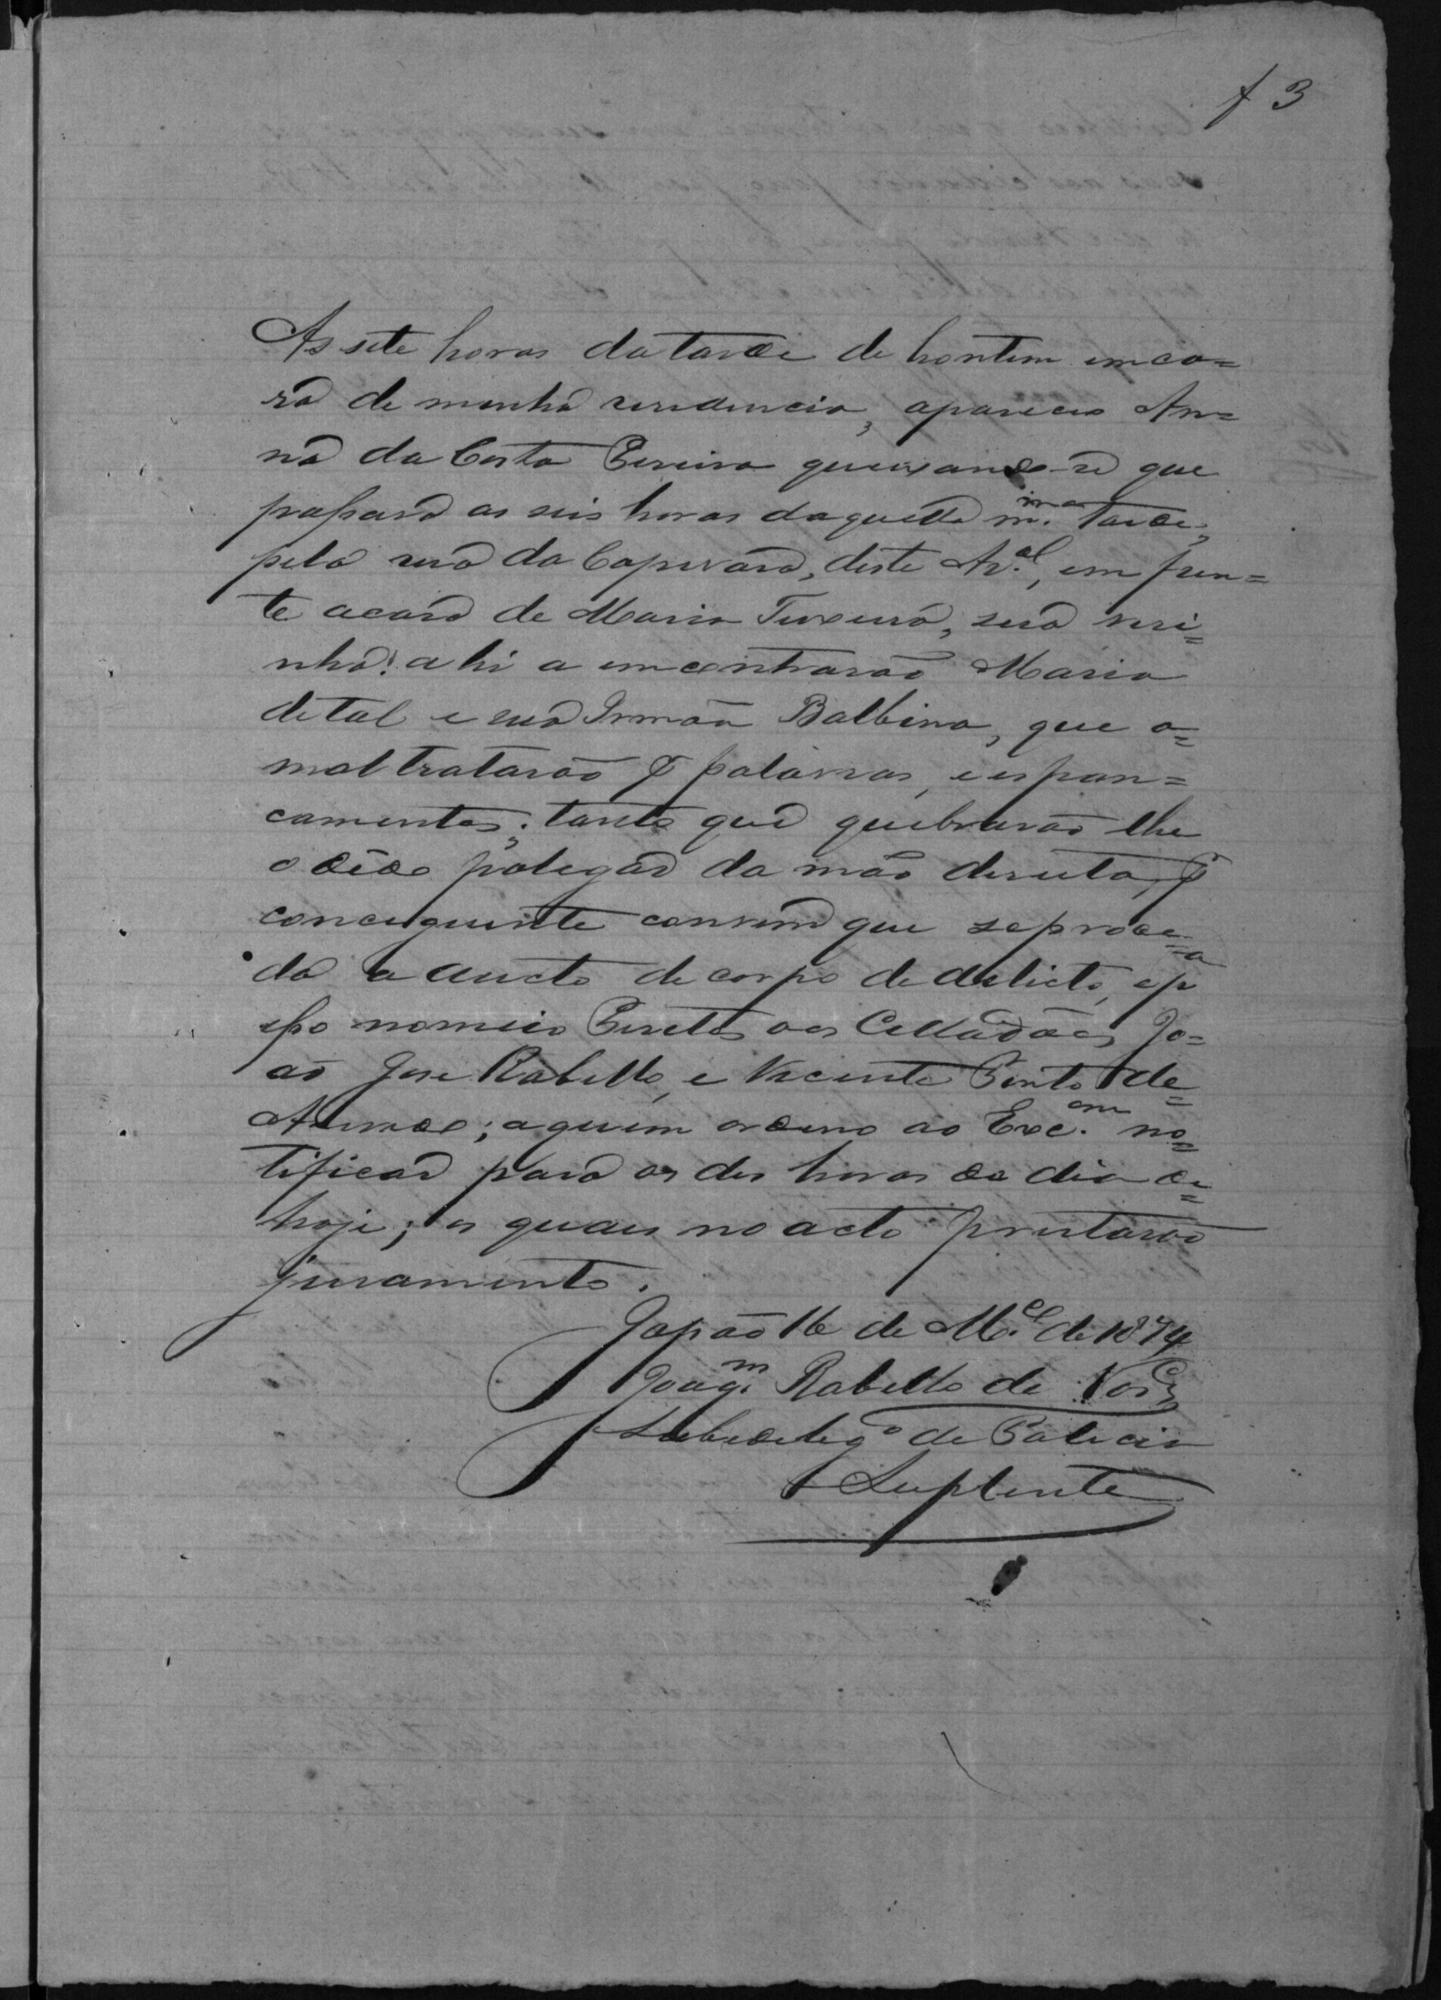 f 3
As sete horas da tarde de hontem em ca=
sa de minha residencia, apareceo An=
na da Costa Pereira queixando-se que
passand as seis horas daquella m.ma tarde,
pela rua da Capivara, deste Ar.al, em fren=
te a casa de Maria Teixeira, sua visi=
nha! ahi a emcontrarão Maria
de tal e sua Irmãa Balbina, que a=
maltratarão p palavras, e espan=
camentos; tanto que quebrarão lhe
o dedo polegar da mão direita, p
conceguinte convem que se proce=
da a aucto de corpo de delicto, e p.a
isso nomeio Peritos aos Cidadãos Jo=
ão Jose Rabello, e Vicente Pinto de=
; a quem ordeno ao Esc.am no=
tificar para as des horas do dia de=
hoje; os quaes no acto prestarão
juramento.
Japão 16 de M.el de 1874
Joaq.m Rabello de
Subdeleg.o de Policia
Suplente